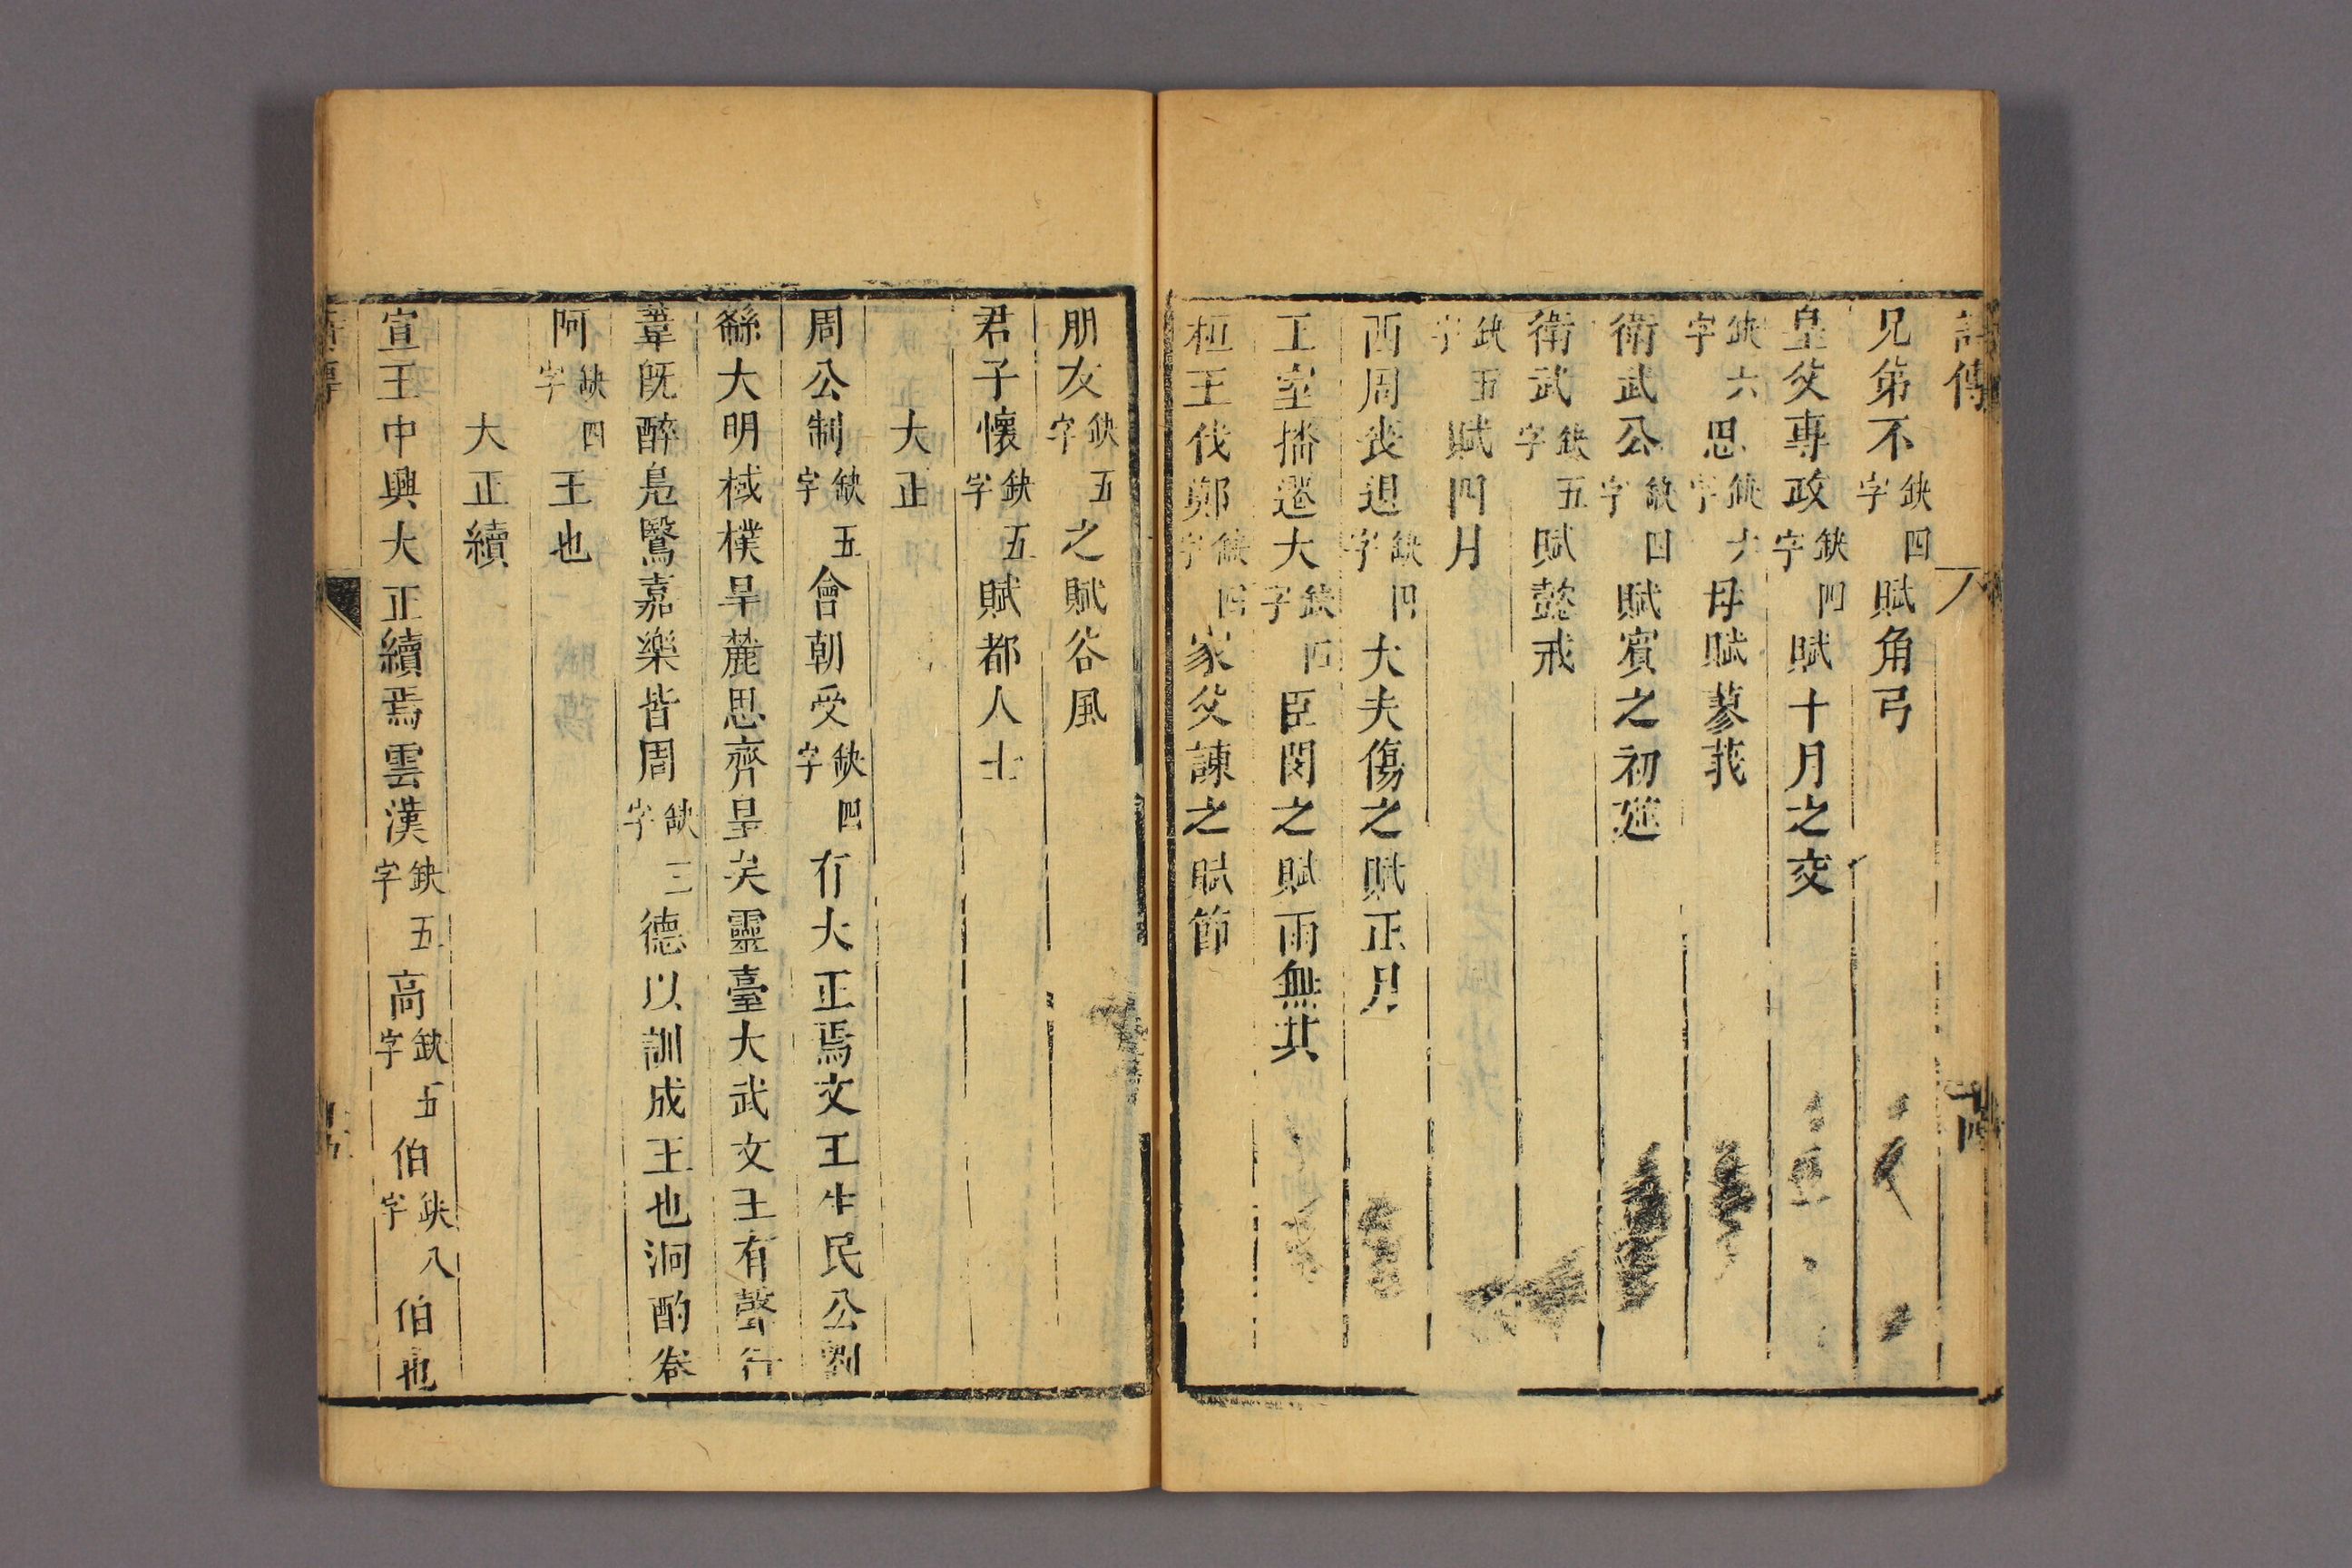 詩傳 十四
兄弟不缺四字賦角弓
皇父專政缺四字賦十月之交
缺六字思缺六字母賦蓼莪
衛武公缺四字賦賓之初筵
衛武缺五字賦懿戒
缺五字賦四月
西周喪退缺四字大夫傷之賦正月
王室播遷大缺四字臣閔之賦雨無其
桓王伐鄭缺四字家父諫之賦節
朋友缺五字之賦谷風
君子懷缺五字賦都人士
大正
周公制缺五字會朝受缺四字有大正焉文王生民公劉
緜大明棫樸旱麓思齊皇矣靈臺大武文王有聲行
葦既醉鳧鷖嘉樂皆周缺三字德以訓成王也泂酌卷
阿缺四字王也
大正續
宣王中興大正續焉雲漢缺五字高缺五字伯缺八字伯也